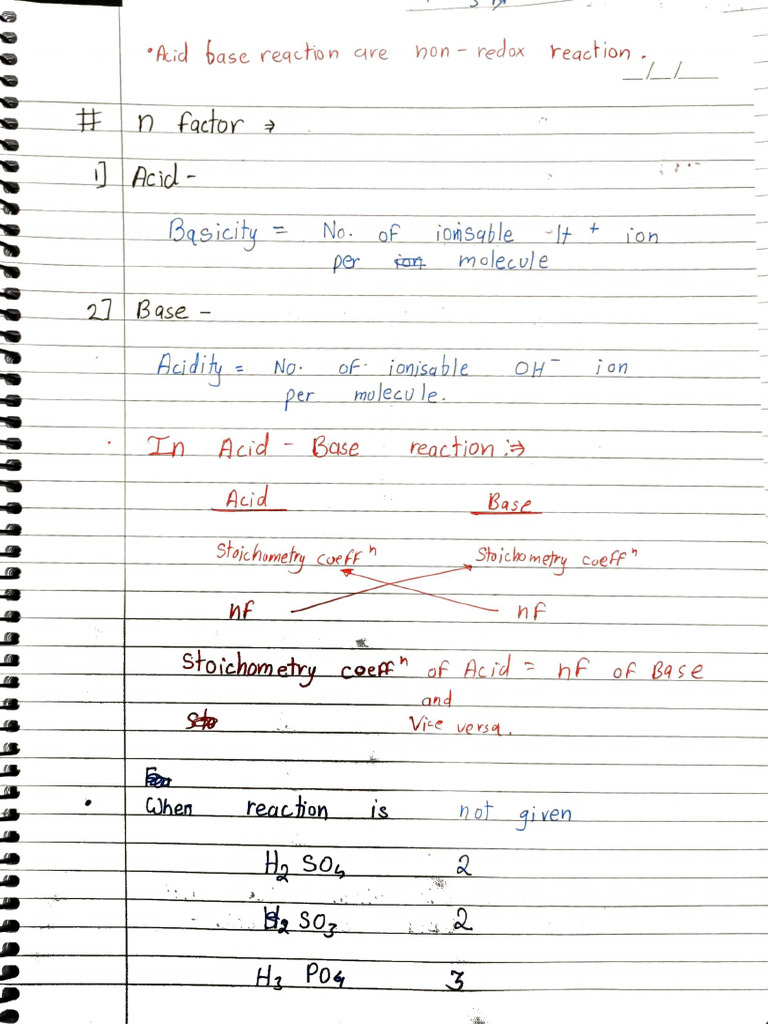 •Acid base reaction are non-redox reaction.
_/_/_
# n factor ⇒
1] Acid -
Basicity = No. of ionisable H + ion
per molecule
2] Base -
Acidity = No. of ionisable OH⁻ ion
per molecule.
• In Acid - Base reaction :⇒
Acid Base
Stoichometry coeffⁿ Stoichometry coeffⁿ
nf nf
Stoichometry coeffⁿ of Acid = nf of Base
and
Vice versa.
• When reaction is not given
H₂ SO₄ 2
H₂ SO₃ 2
H₃ PO₄ 3